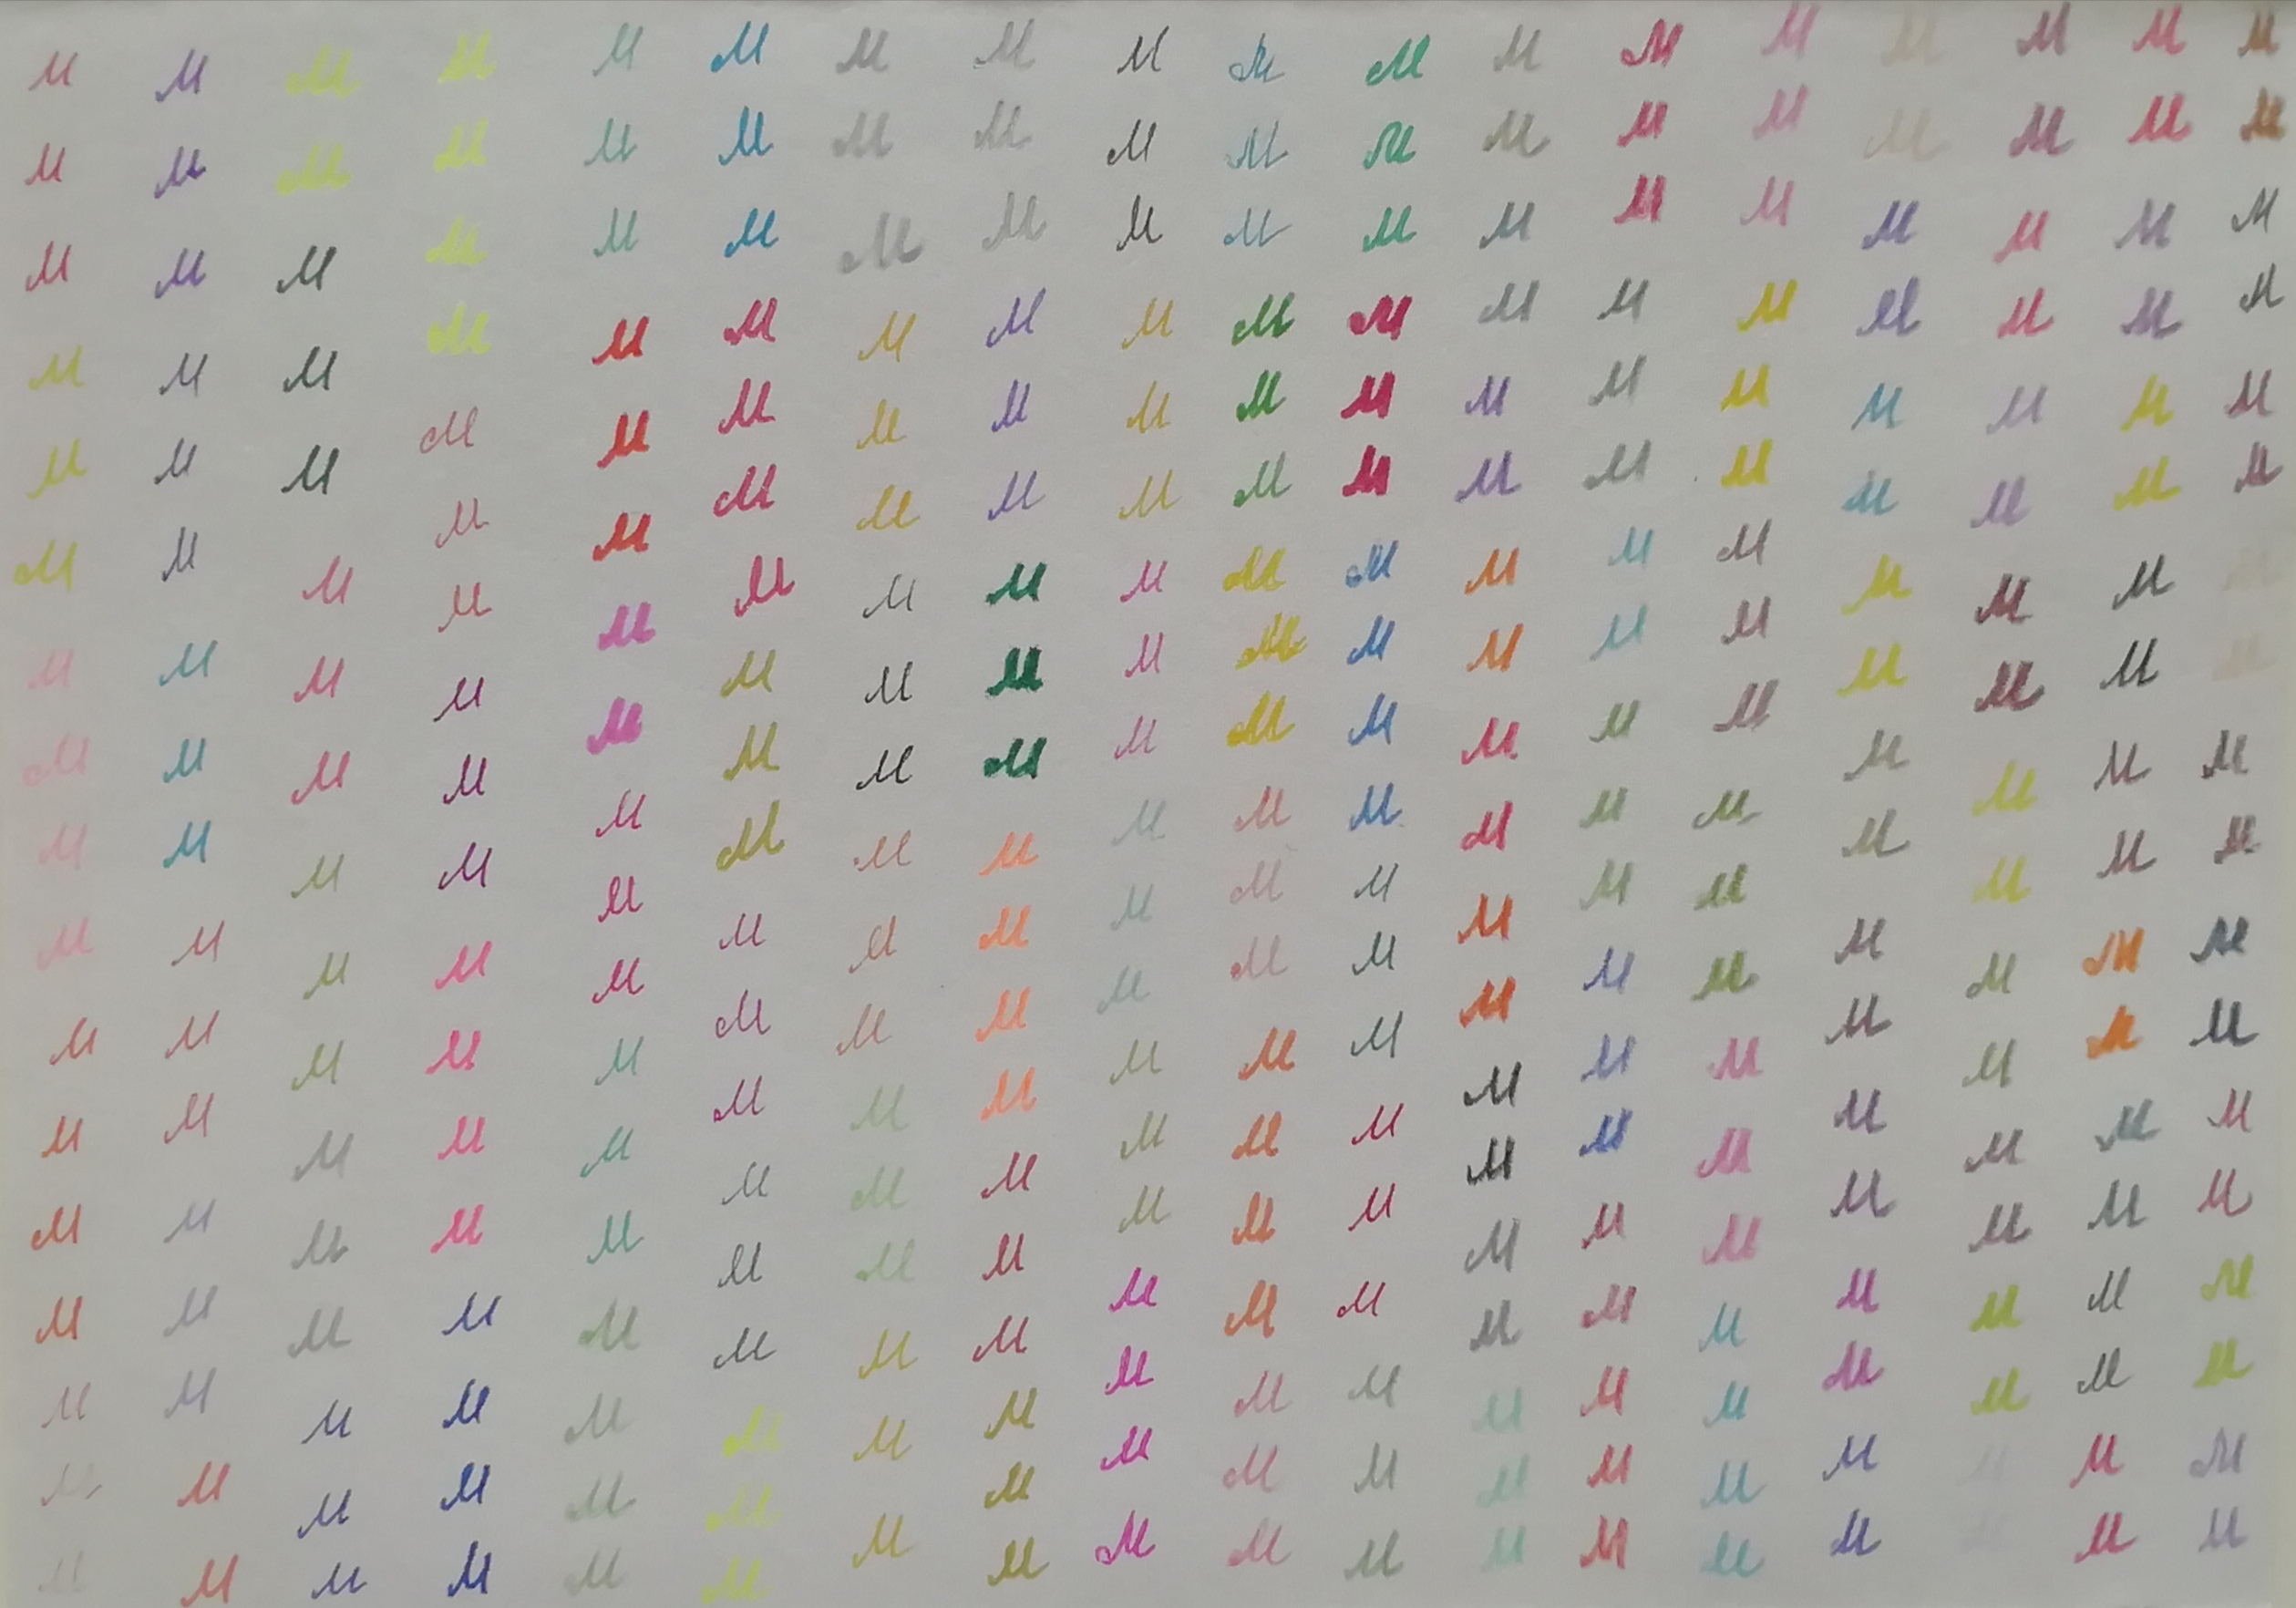 М М М М М М М М М М М М М М М М М М
М М М М М М М М М М М М М М М М М М
М М М М М М М М М М М М М М М М М М
М М М М М М М М М М М М М М М М М М
М М М М М М М М М М М М М М М М М М
М М М М М М М М М М М М М М М М М М
М М М М М М М М М М М М М М М М М М
М М М М М М М М М М М М М М М М М М
М М М М М М М М М М М М М М М М М М
М М М М М М М М М М М М М М М М М М
М М М М М М М М М М М М М М М М М М
М М М М М М М М М М М М М М М М М М
М М М М М М М М М М М М М М М М М М
М М М М М М М М М М М М М М М М М М
М М М М М М М М М М М М М М М М М М
М М М М М М М М М М М М М М М М М М
М М М М М М М М М М М М М М М М М М
М М М М М М М М М М М М М М М